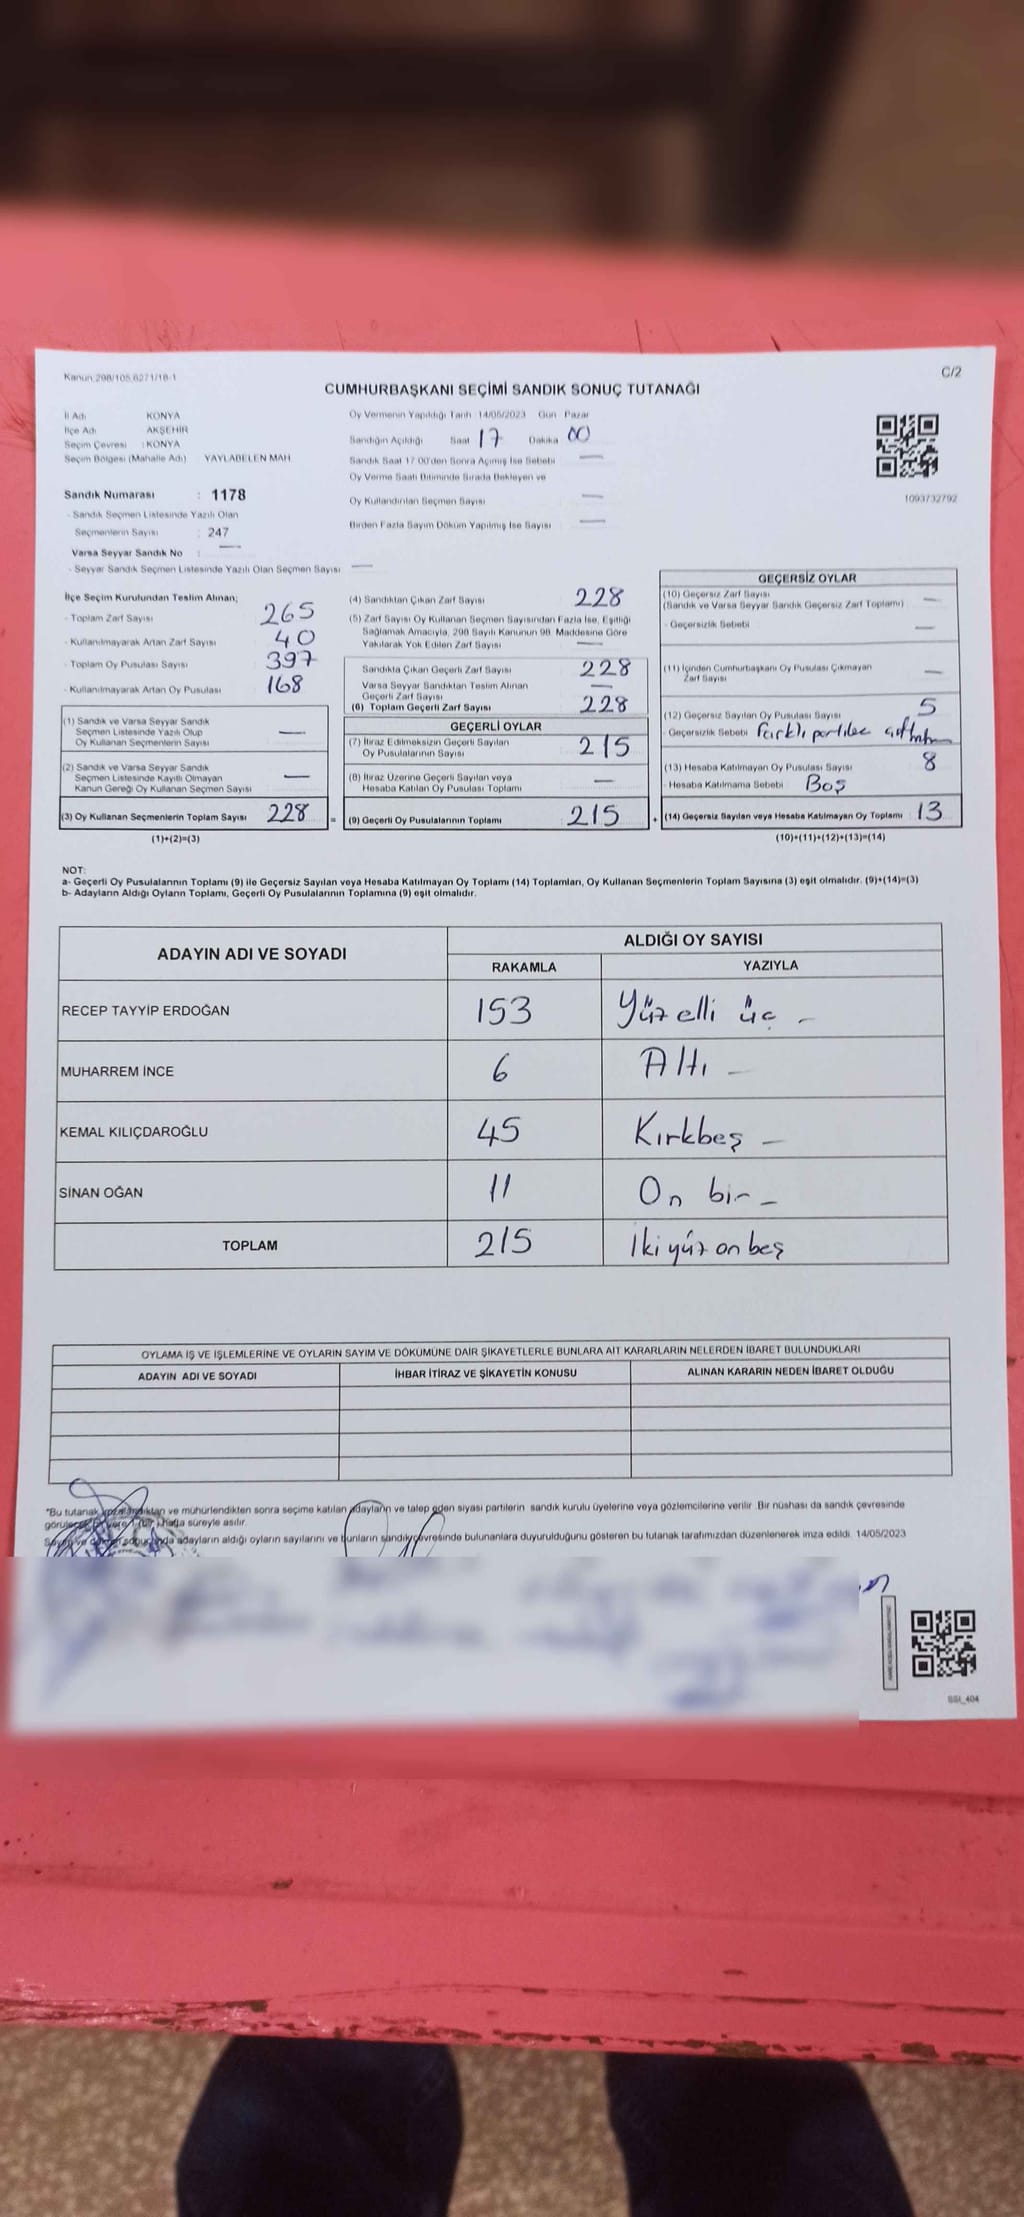 Kanun 298/105 6271/18-1
C/2
CUMHURBAŞKANI SEÇİMİ SANDIK SONUÇ TUTANAĞI
İl Adı KONYA
İlçe Adı AKŞEHİR
Seçim Çevresi : KONYA
Seçim Bölgesi (Mahalle Adı) YAYLABELEN MAH
Sandık Numarası : 1178
- Sandık Seçmen Listesinde Yazılı Olan
Seçmenlerin Sayısı : 247
Varsa Seyyar Sandık No : —
- Seyyar Sandık Seçmen Listesinde Yazılı Olan Seçmen Sayısı —
Oy Vermenin Yapıldığı Tarih 14/05/2023 Gün Pazar
Sandığın Açıldığı Saat 17 Dakika 00
Sandık Saat 17 00'den Sonra Açılmış İse Sebebi —
Oy Verme Saati Bitiminde Sırada Bekleyen ve
Oy Kullandırılan Seçmen Sayısı —
Birden Fazla Sayım Döküm Yapılmış İse Sayısı —
1093732792
İlçe Seçim Kurulundan Teslim Alınan;
- Toplam Zarf Sayısı 265
- Kullanılmayarak Artan Zarf Sayısı 40
- Toplam Oy Pusulası Sayısı 397
- Kullanılmayarak Artan Oy Pusulası 168
(1) Sandık ve Varsa Seyyar Sandık
Seçmen Listesinde Yazılı Olup
Oy Kullanan Seçmenlerin Sayısı —
(2) Sandık ve Varsa Seyyar Sandık
Seçmen Listesinde Kayıtlı Olmayan
Kanun Gereği Oy Kullanan Seçmen Sayısı —
(3) Oy Kullanan Seçmenlerin Toplam Sayısı 228 =
(1)+(2)=(3)
(4) Sandıktan Çıkan Zarf Sayısı 228
(5) Zarf Sayısı Oy Kullanan Seçmen Sayısından Fazla İse, Eşitliği
Sağlamak Amacıyla, 298 Sayılı Kanunun 98. Maddesine Göre
Yakılarak Yok Edilen Zarf Sayısı —
Sandıkta Çıkan Geçerli Zarf Sayısı 228
Varsa Seyyar Sandıktan Teslim Alınan
Geçerli Zarf Sayısı —
(6) Toplam Geçerli Zarf Sayısı 228
GEÇERLİ OYLAR
(7) İtiraz Edilmeksizin Geçerli Sayılan
Oy Pusulalarının Sayısı 215
(8) İtiraz Üzerine Geçerli Sayılan veya
Hesaba Katılan Oy Pusulası Toplamı —
(9) Geçerli Oy Pusulalarının Toplamı 215 +
GEÇERSİZ OYLAR
(10) Geçersiz Zarf Sayısı
(Sandık ve Varsa Seyyar Sandık Geçersiz Zarf Toplamı) —
- Geçersizlik Sebebi —
(11) İçinden Cumhurbaşkanı Oy Pusulası Çıkmayan
Zarf Sayısı —
(12) Geçersiz Sayılan Oy Pusulası Sayısı 5
- Geçersizlik Sebebi Farklı partilere
(13) Hesaba Katılmayan Oy Pusulası Sayısı 8
- Hesaba Katılmama Sebebi Boş
(14) Geçersiz Sayılan veya Hesaba Katılmayan Oy Toplamı 13
(10)+(11)+(12)+(13)=(14)
NOT:
a- Geçerli Oy Pusulalarının Toplamı (9) ile Geçersiz Sayılan veya Hesaba Katılmayan Oy Toplamı (14) Toplamları, Oy Kullanan Seçmenlerin Toplam Sayısına (3) eşit olmalıdır. (9)+(14)=(3)
b- Adayların Aldığı Oyların Toplamı, Geçerli Oy Pusulalarının Toplamına (9) eşit olmalıdır.
ADAYIN ADI VE SOYADI ALDIĞI OY SAYISI
RAKAMLA YAZIYLA
RECEP TAYYİP ERDOĞAN 153 Yüz elli üç –
MUHARREM İNCE 6 Altı –
KEMAL KILIÇDAROĞLU 45 Kırkbeş –
SİNAN OĞAN 11 On bir –
TOPLAM 215 İki yüz on beş
OYLAMA İŞ VE İŞLEMLERİNE VE OYLARIN SAYIM VE DÖKÜMÜNE DAİR ŞİKAYETLERLE BUNLARA AİT KARARLARIN NELERDEN İBARET BULUNDUKLARI
ADAYIN ADI VE SOYADI İHBAR İTİRAZ VE ŞİKAYETİN KONUSU ALINAN KARARIN NEDEN İBARET OLDUĞU
"Bu tutanak ve mühürlendikten sonra seçime katılan adayların ve talep eden siyasi partilerin sandık kurulu üyelerine veya gözlemcilerine verilir. Bir nüshası da sandık çevresinde
süreyle asılır.
adayların aldığı oyların sayılarını ve bunların sandık çevresinde bulunanlara duyurulduğunu gösteren bu tutanak tarafımızdan düzenlenerek imza edildi. 14/05/2023
SSI_404